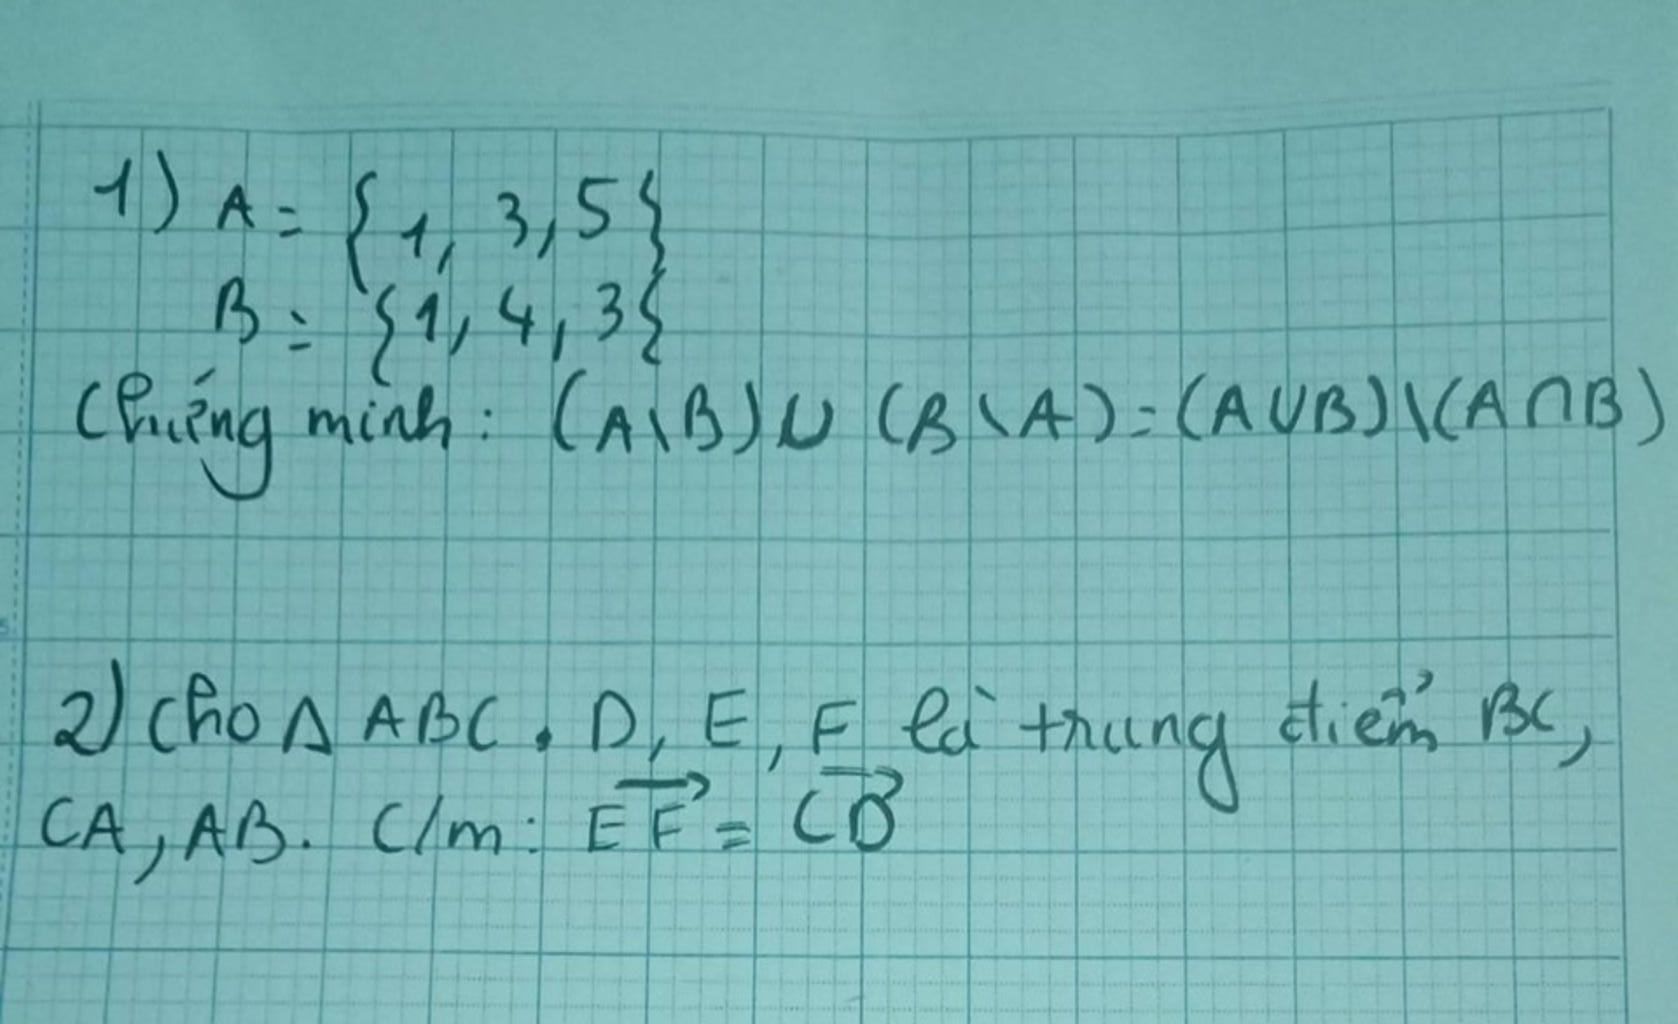 1) A = {1, 3, 5}
B = {1, 4, 3}
Chứng minh: (A\B) ∪ (B\A) = (A∪B)\(A∩B)
2) Cho Δ ABC. D, E, F là trung điểm BC,
CA, AB. C/m: \overrightarrow{EF} = \overrightarrow{CD}